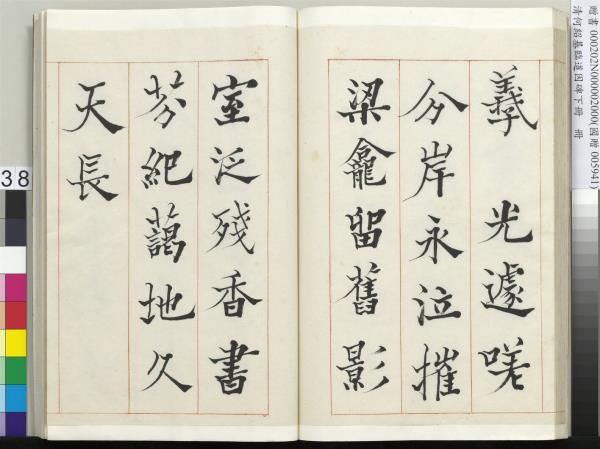 贈書 000202N000002000(國贈 005941)
清何紹基臨道因碑下冊 冊
羲 光遽嗟
分岸永泣摧
梁龕留舊影
室泛殘香書
芬紀藹地久
天長
38